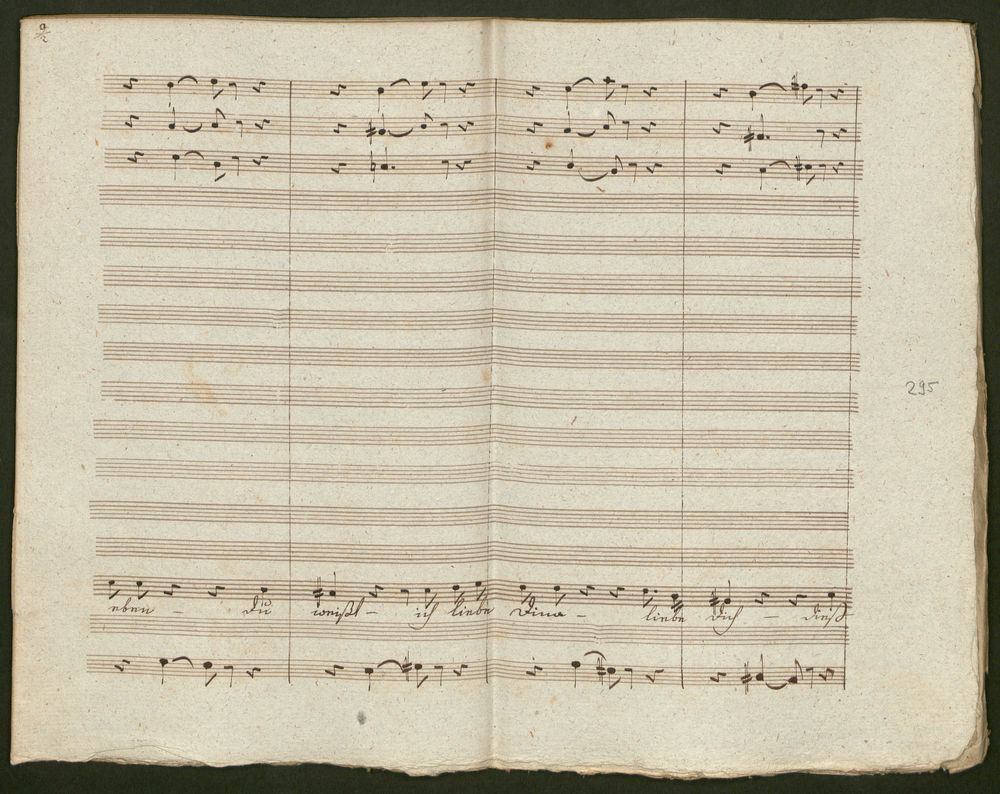 295
eben - du weißt - ich liebe Dina - liebe dich - dieß